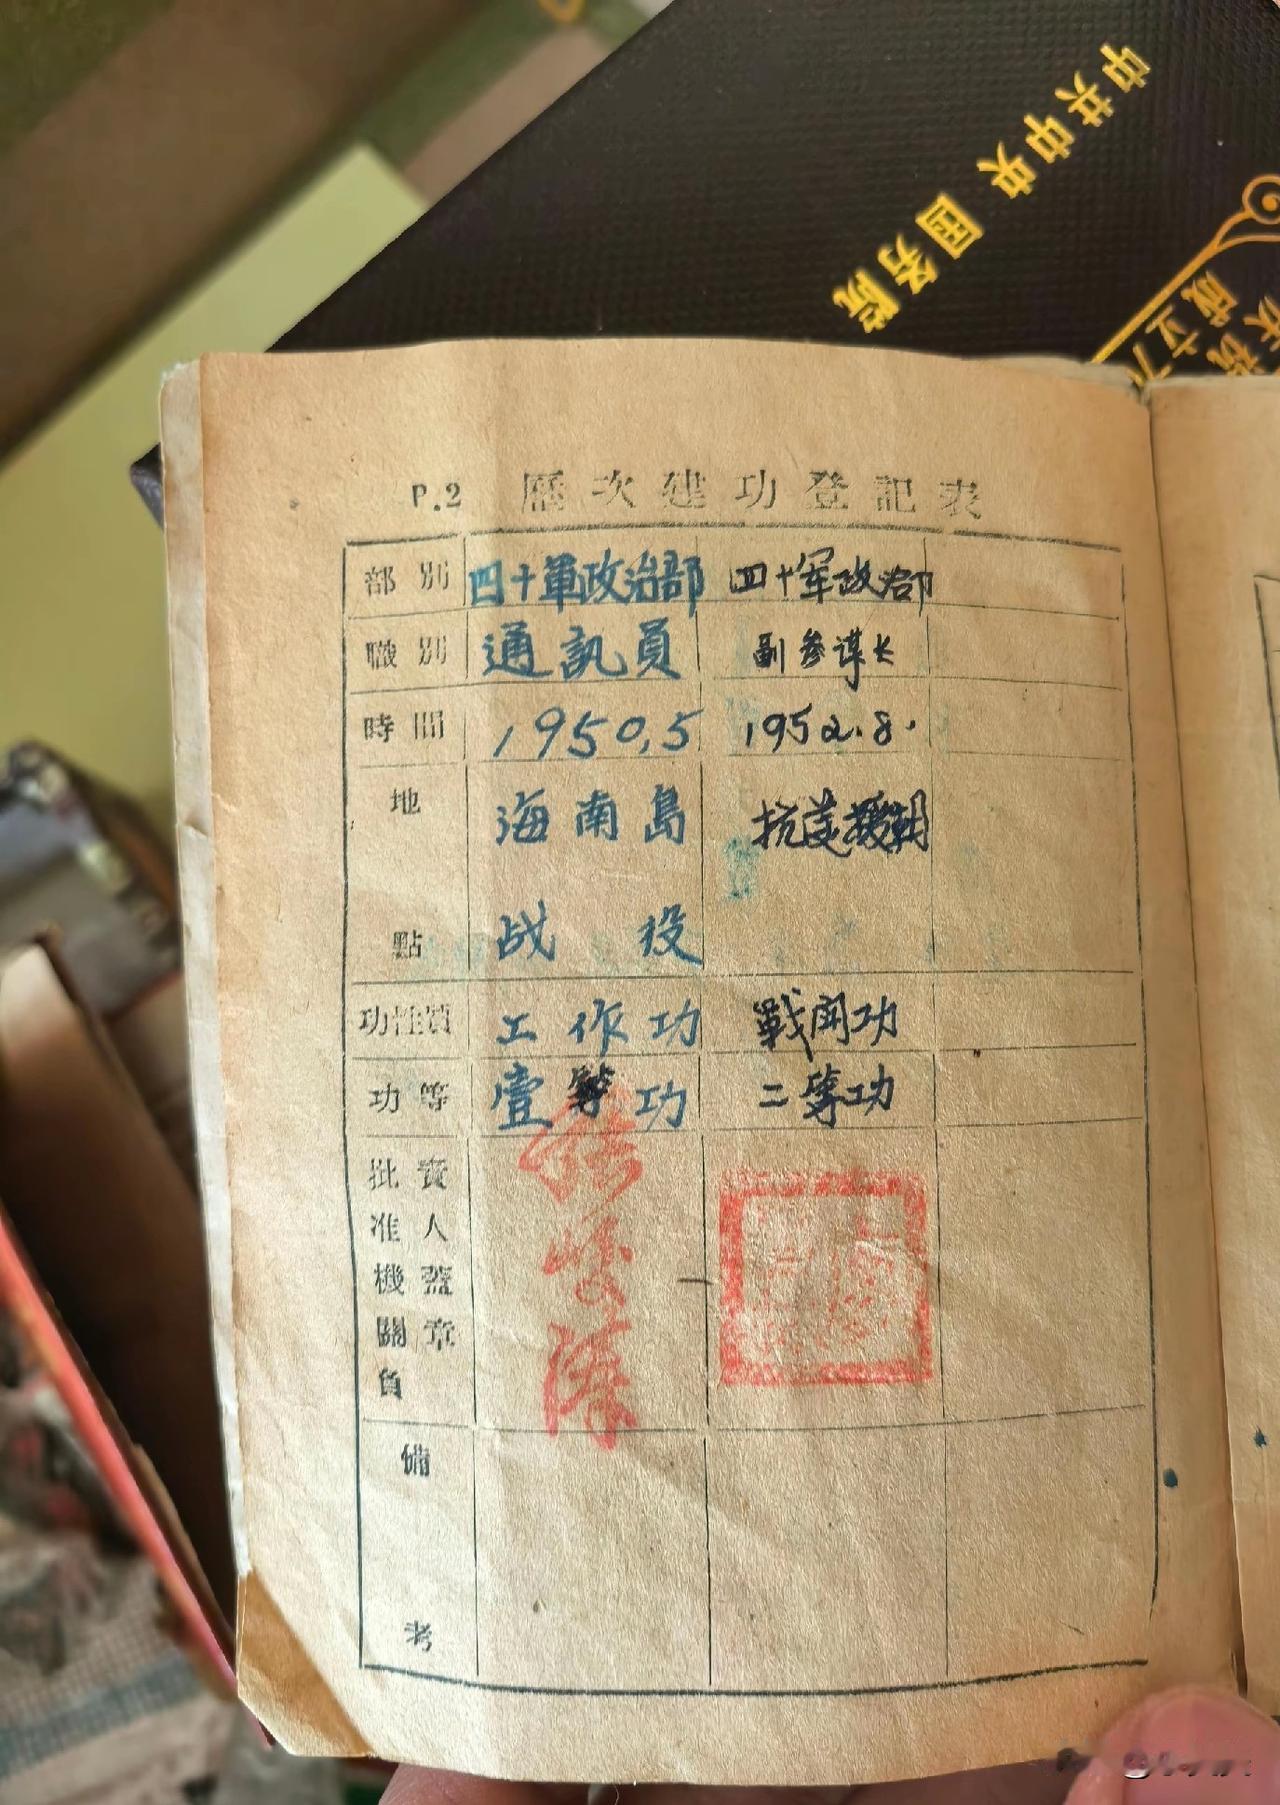 中共中央 国务院
成立
P.2 歷次建功登記表
部別 四十軍政治部 四十军政治部
職別 通訊員 副参谋长
時間 1950.5 1952.8.
地點 海南島战役 抗美援朝
功性質 工作功 戰鬥功
功等 壹等功 二等功
批准機關負責人蓋章
備考